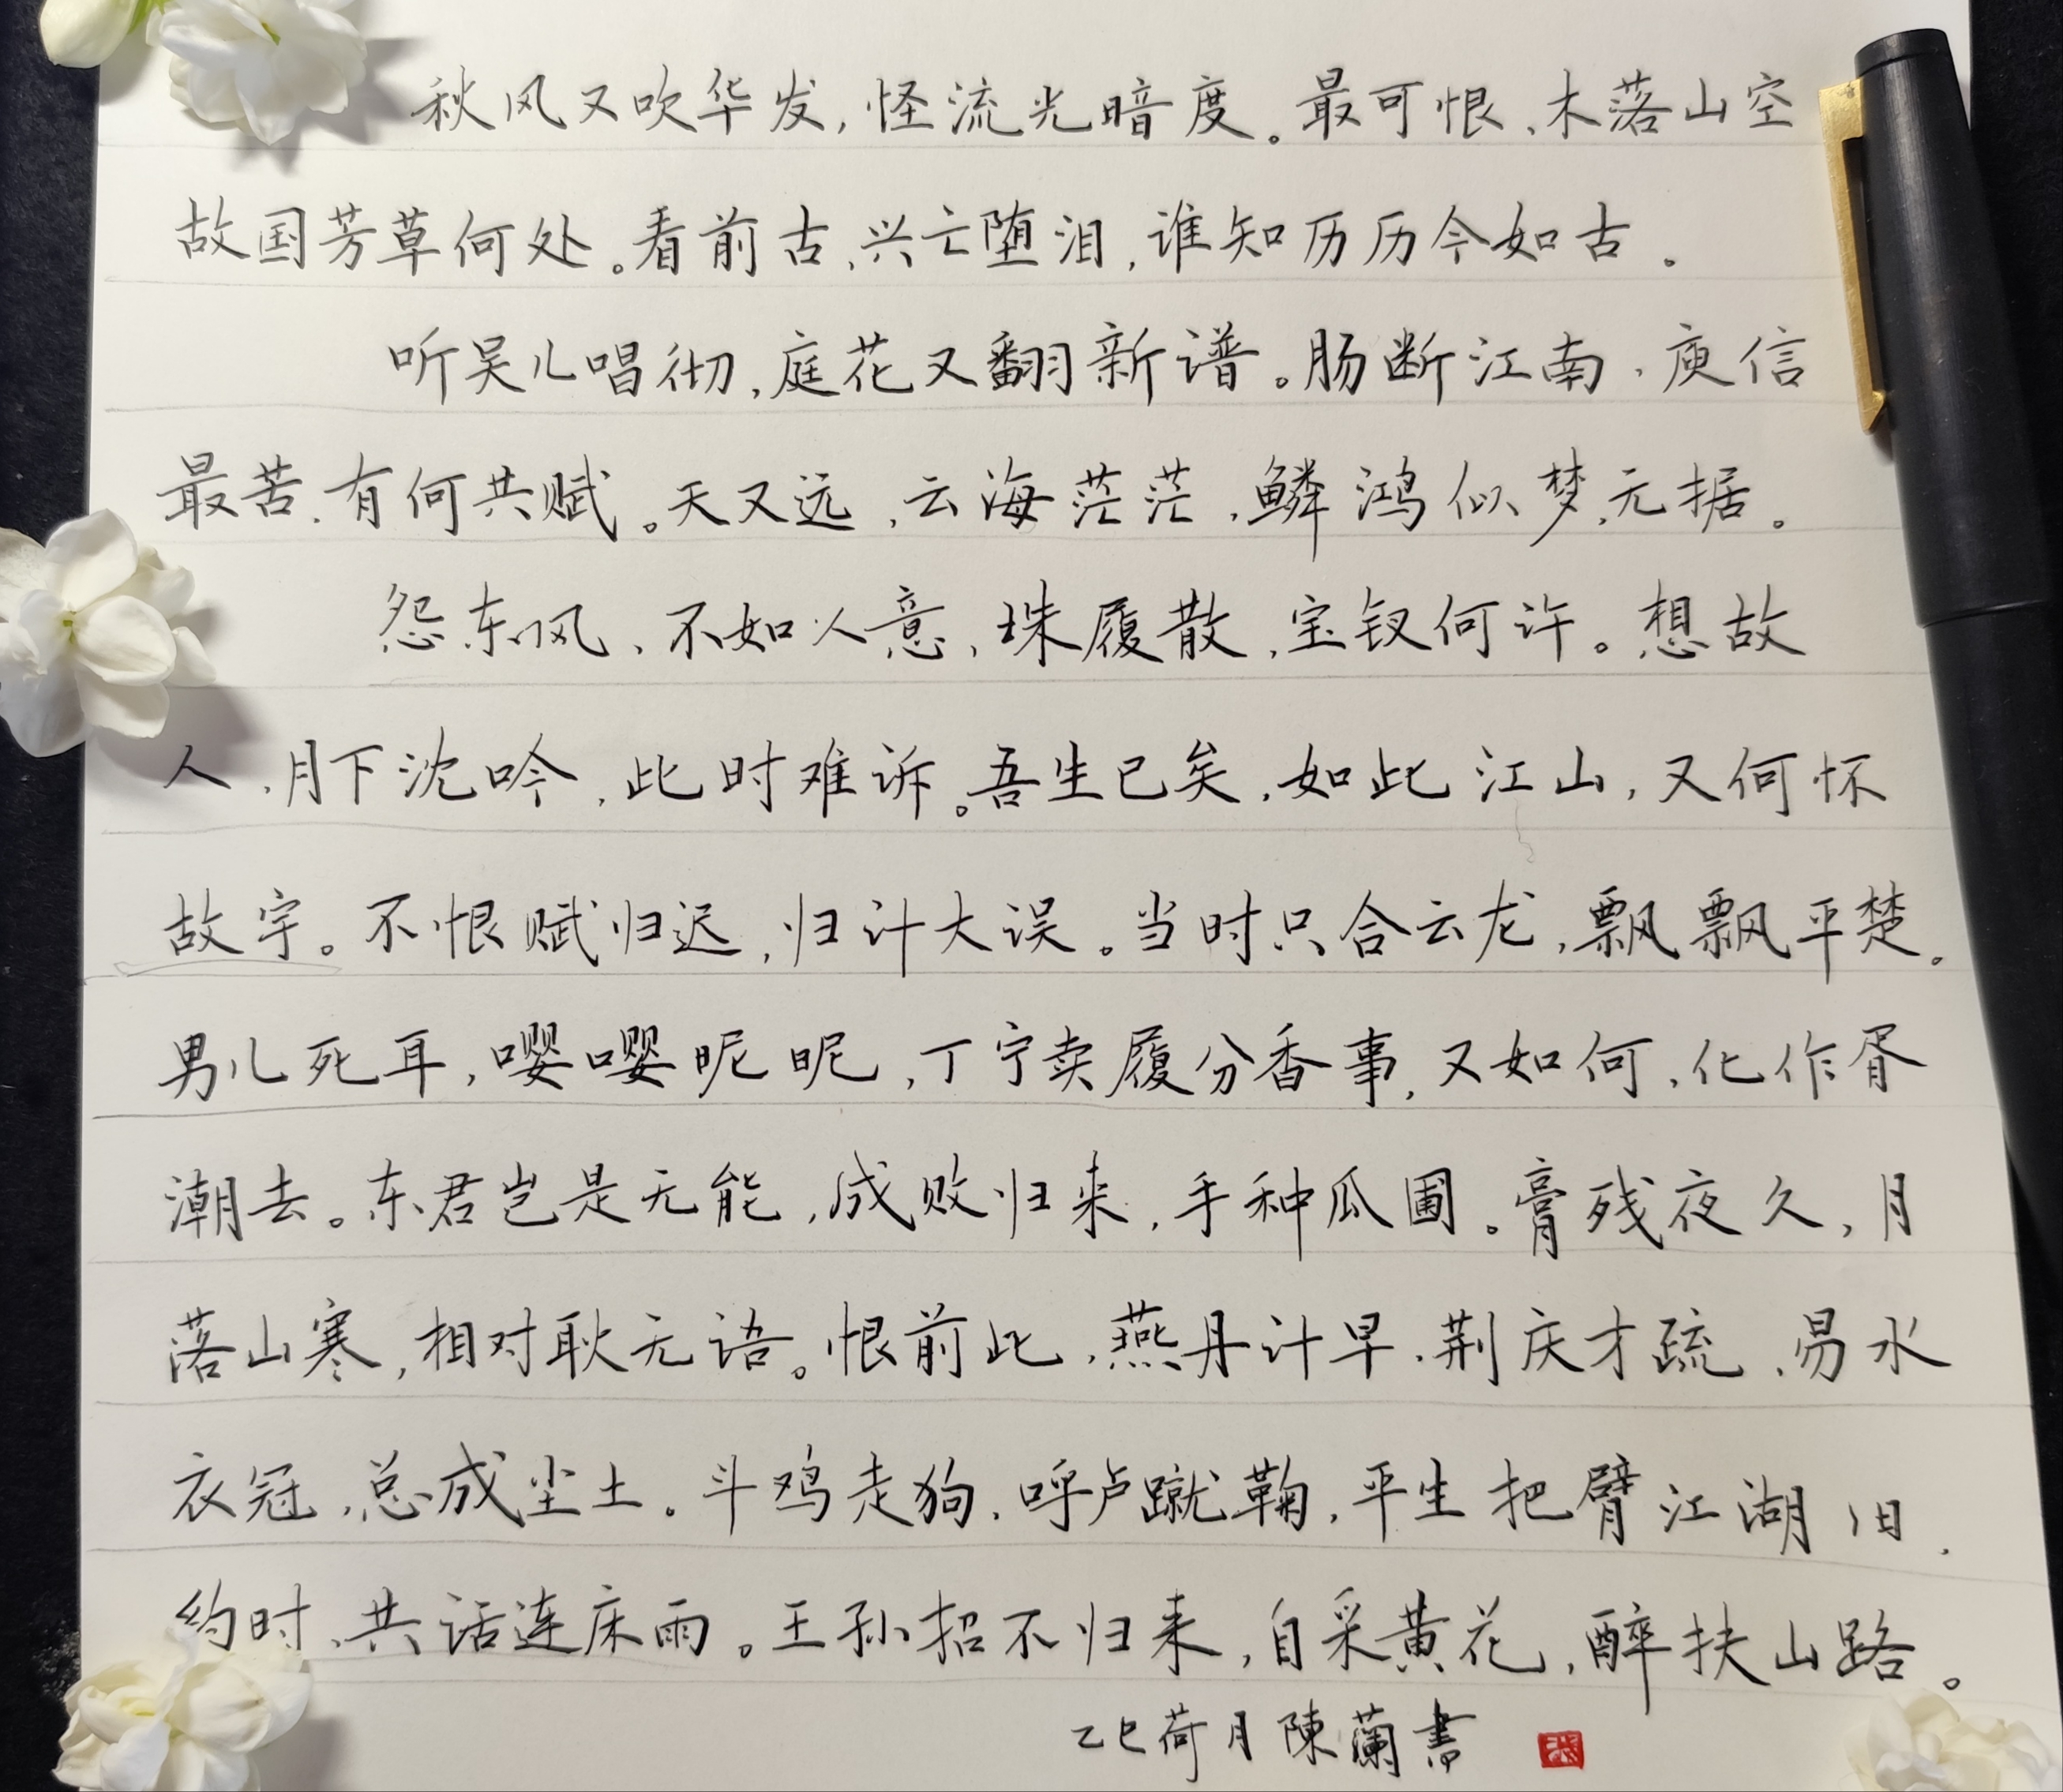 秋风又吹华发,怪流光暗度。最可恨、木落山空
故国芳草何处。看前古、兴亡堕泪,谁知历历今如古。
听吴儿唱彻,庭花又翻新谱。肠断江南,庾信
最苦、有何共赋。天又远,云海茫茫,鳞鸿似梦、无据。
怨东风、不如人意,珠履散,宝钗何许。想故
人、月下沈吟,此时难诉。吾生已矣,如此江山,又何怀
故宇。不恨赋归迟,归计大误。当时只合云龙,飘飘平楚。
男儿死耳,嘤嘤昵昵,丁宁卖履分香事,又如何,化作胥
潮去。东君岂是无能,成败归来,手种瓜圃。膏残夜久,月
落山寒,相对耿无语。恨前此,燕丹计早、荆庆才疏,易水
衣冠,总成尘土。斗鸡走狗、呼卢蹴鞠,平生把臂江湖旧、
约时、共话连床雨。王孙招不归来,自采黄花,醉扶山路。
乙巳荷月陳蘭書